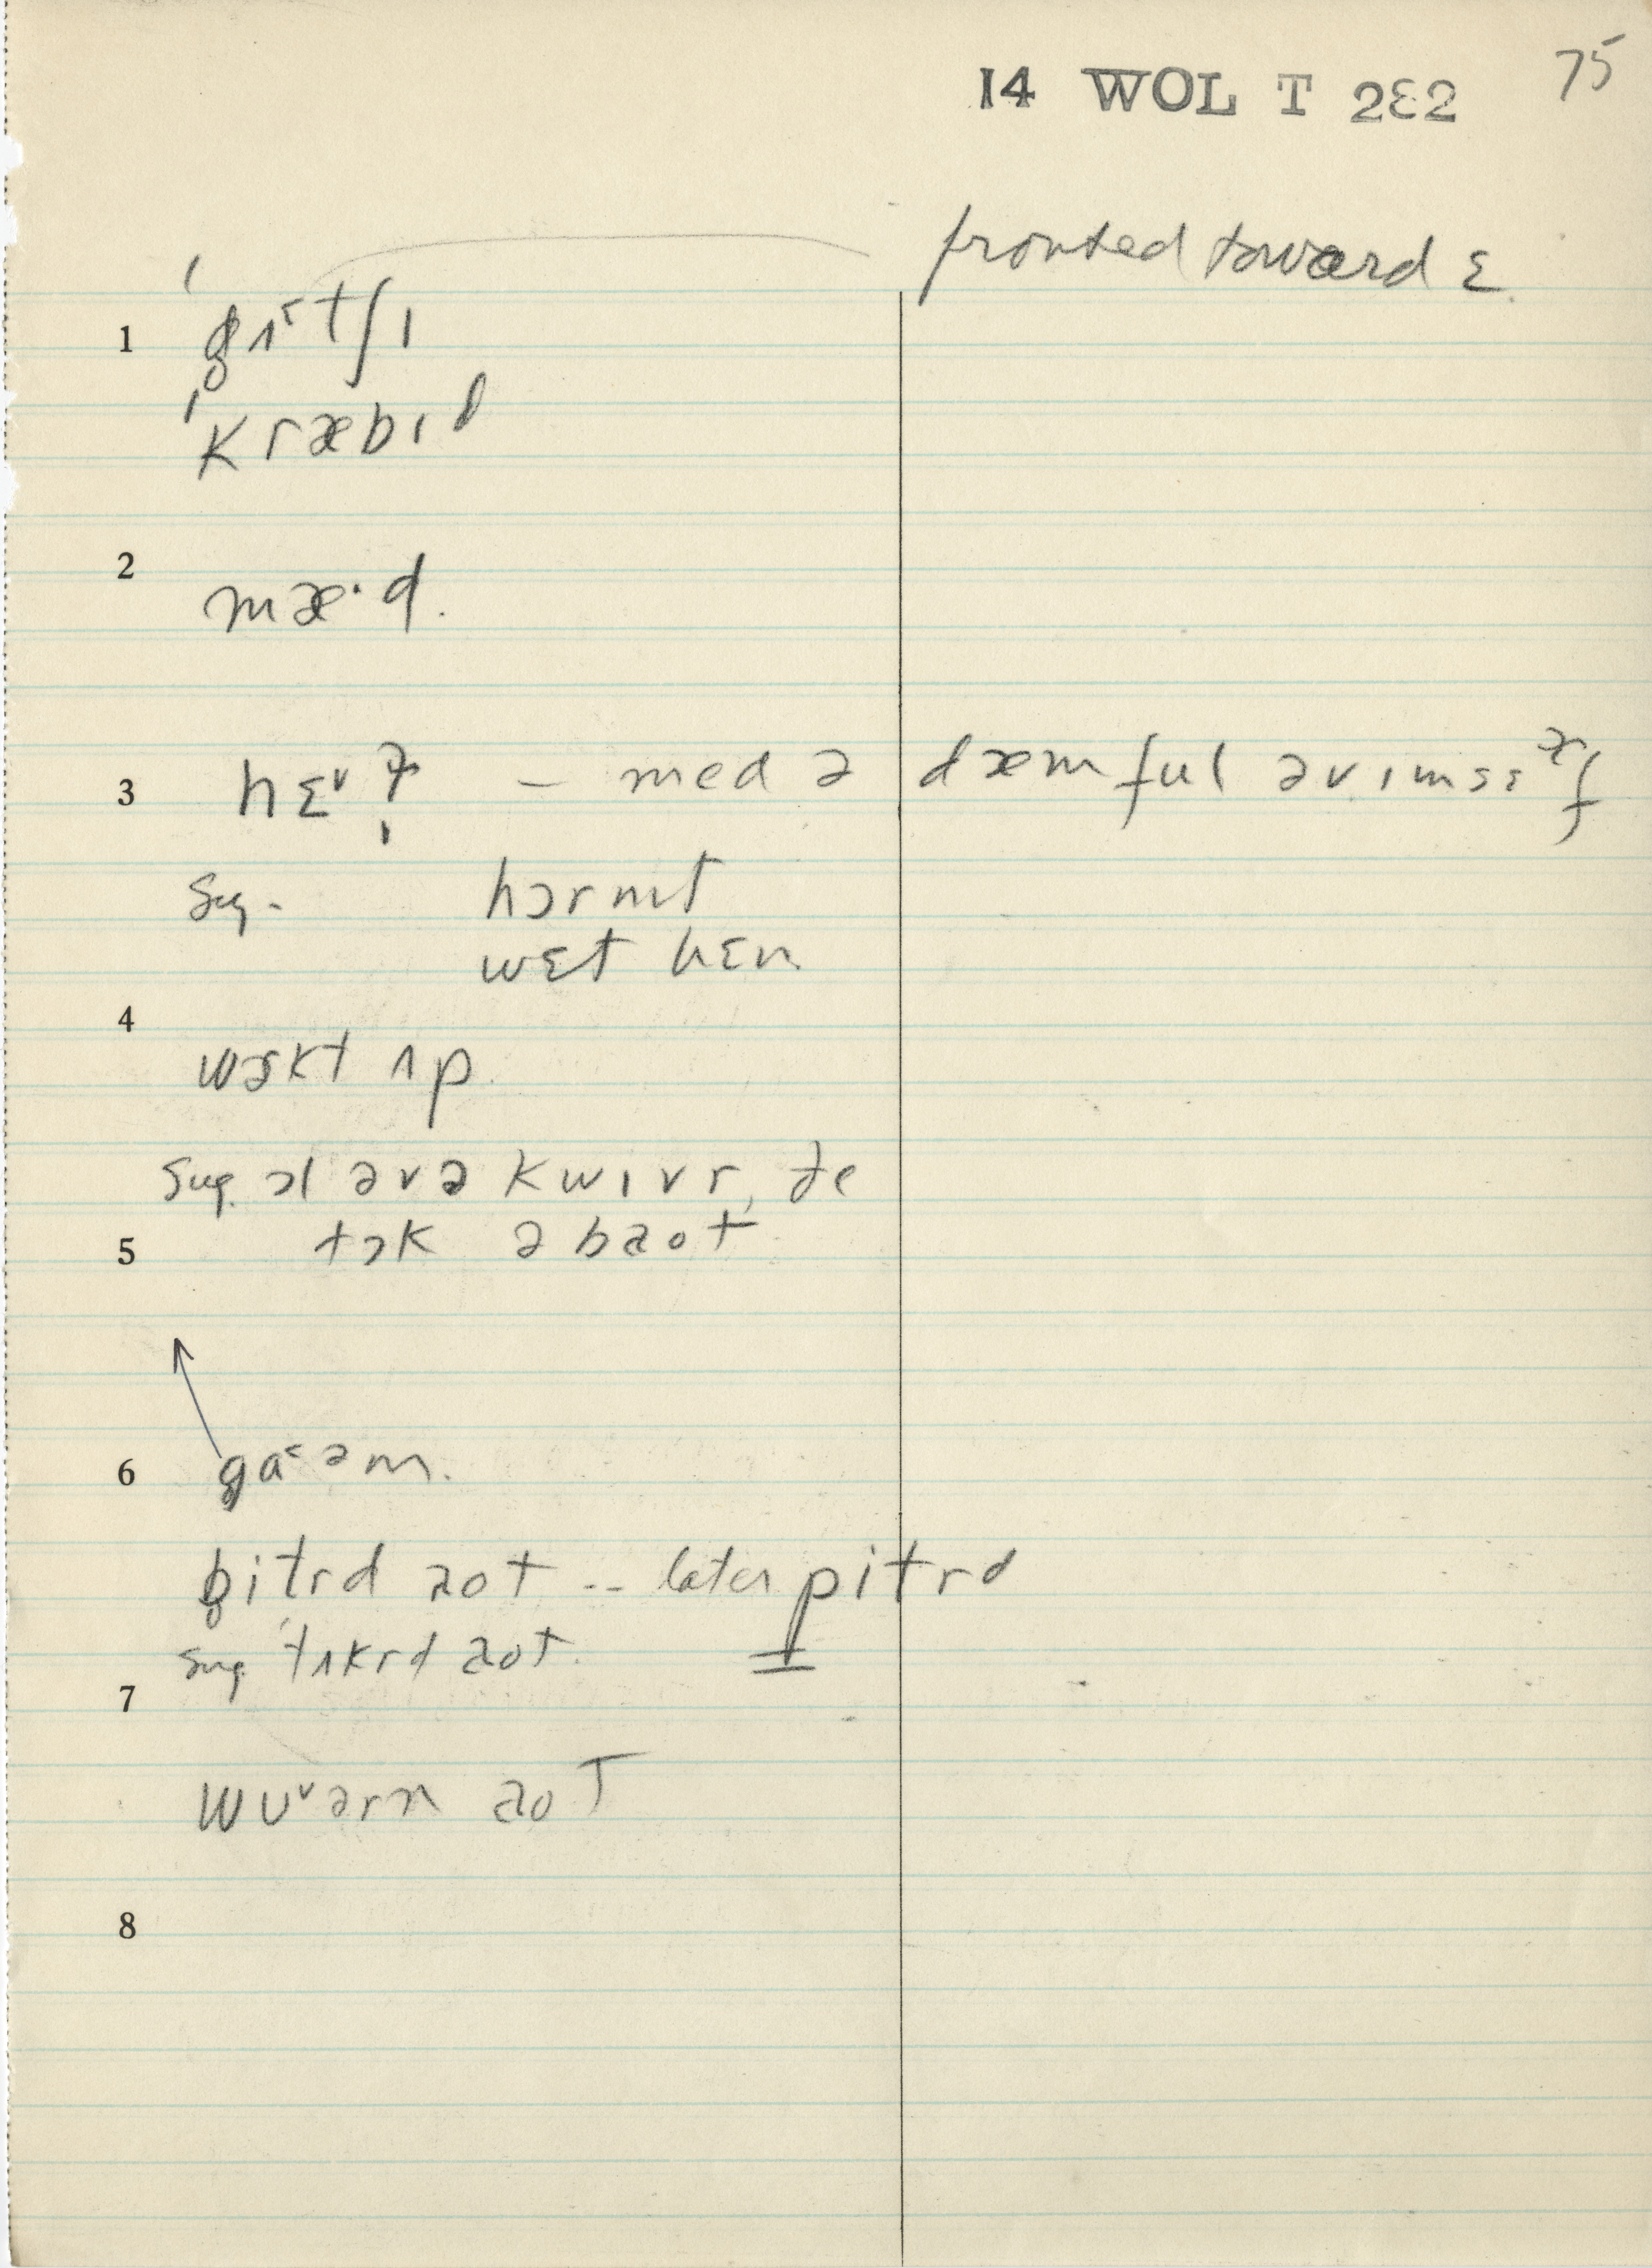 14 WOL T 2Ɛ2 75
fronted toward ɛ
1 ˈg̥ʌ˂tʃɪ
ˈkræbɪd
2 mæ·d.
3 hɛᵛ – med ə dæmful əv ɪmsɛf
Sug. hɔrnɪt
wɛt hɛn
4 wəkt ʌp.
Sug. ɔl əvə kwɪvr, ðe
5 tɔk əbaot
6 ga˂əm.
b̥itrd aot -- later pitrd
Sug. tʌkrd aot.
7
wʊᵛərn aot
8